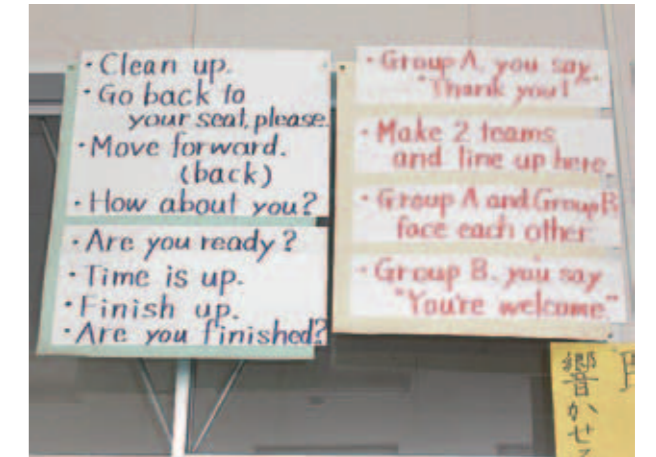 · Clean up.
· Go back to
your seat, please.
· Move forward.
(back)
· How about you?
· Are you ready?
· Time is up.
· Finish up.
· Are you finished?
· Group A, you say
"Thank you!"
· Make 2 teams
and line up here
· Group A and Group B
face each other
· Group B, you say
"You're welcome"
響かせ